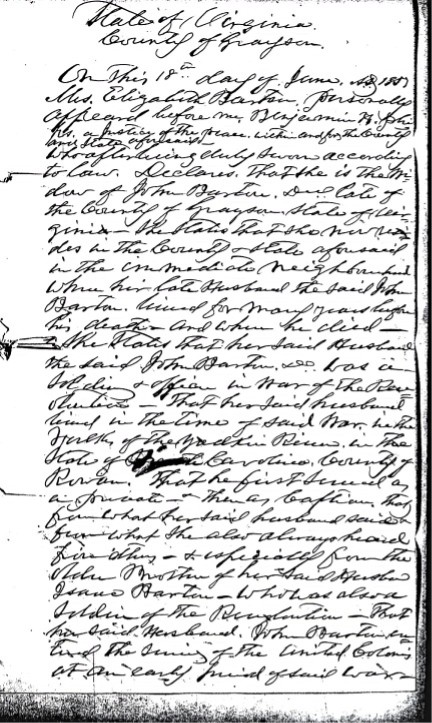 State of Virginia
County of Grayson.
On this 18th day of June, AD 185
Mrs. Elizabeth Barton, personally
appeard before me, Benjamin
a Justice of the peace within and for the County
and State aforesaid
who after being duly sworn according
to law. Declares, that she is the Wi-
dow of John Barton. Decd. late of
the County of Grayson, State of Vir-
ginia - She states that she now resi-
des in the County & State aforesaid
in the immediate neighbourhood
where her late Husband the said John
Barton lived for many years before
his death - and where he died -
She States that her said Husband
the said John Barton, was a
Soldier & officer in War of the Rev-
olution - That her said husband
lived in the time of said War, in the
Forks of the Yadkin River, in the
State of Carolina, County of
Rowan. That he first served as
a private - then as Captain, that
from what her said husband said &
from what she also always heard
- & especially from the
older Brother of her said Husband
Isaac Barton - who was also a
Soldier of the Revolution - That
her said Husband, John Barton en-
tered the Service of the United Colonies
at an early period of said War -